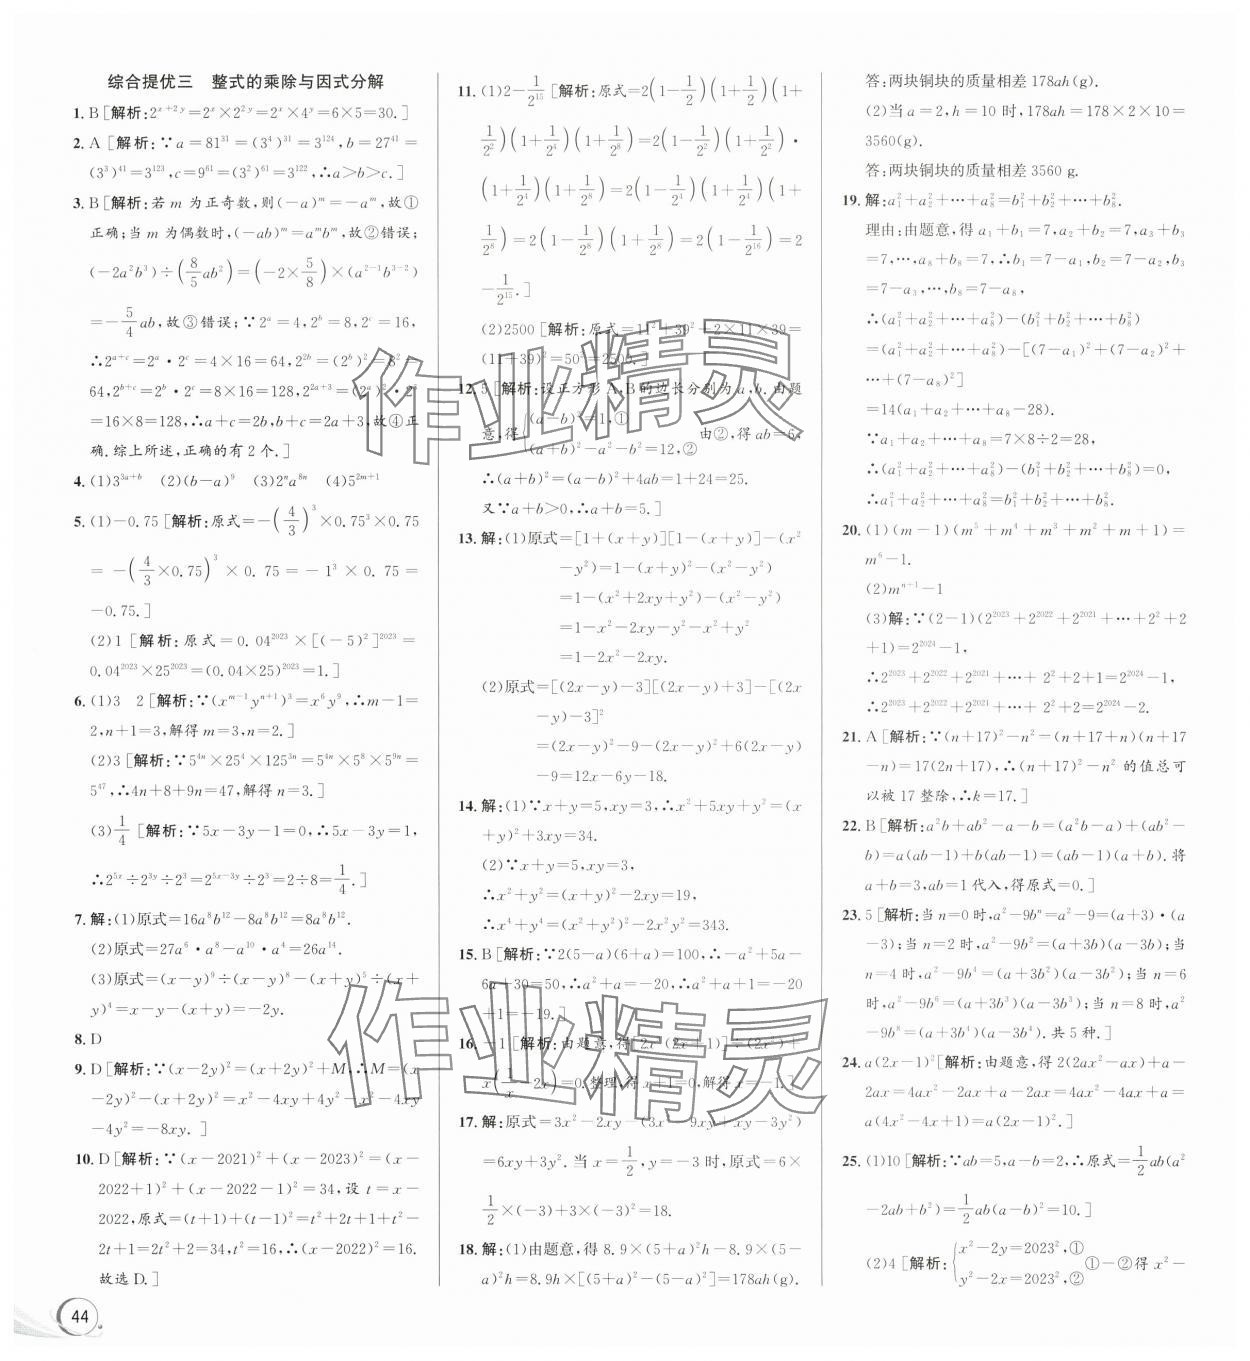 综合提优三 整式的乘除与因式分解
1. B [解析:2^{x+2y}=2^x×2^{2y}=2^x×4^y=6×5=30.]
2. A [解析:∵a=81^{31}=(3^4)^{31}=3^{124},b=27^{41}=
(3^3)^{41}=3^{123},c=9^{61}=(3^2)^{61}=3^{122},∴a>b>c.]
3. B [解析:若 m 为正奇数,则(-a)^m=-a^m,故①
正确;当 m 为偶数时,(-ab)^m=a^m b^m,故②错误;
(-2a^2b^3)÷(8/5 ab^2)=(-2×5/8)×(a^{2-1}b^{3-2})
=-5/4 ab,故③错误;∵2^a=4,2^b=8,2^c=16,
∴2^{a+c}=2^a·2^c=4×16=64,2^{2b}=(2^b)^2=8^2=
64,2^{b+c}=2^b·2^c=8×16=128,2^{2a+3}=(2^a)^2·2^3
=16×8=128,∴a+c=2b,b+c=2a+3,故④正
确.综上所述,正确的有 2 个.]
4. (1)3^{3a+b} (2)(b-a)^9 (3)2^n a^{8n} (4)5^{2m+1}
5. (1)-0.75 [解析:原式=-(4/3)^3×0.75^3×0.75
=-(4/3×0.75)^3×0.75=-1^3×0.75=
-0.75.]
(2)1 [解析:原式=0.04^{2023}×[(-5)^2]^{2023}=
0.04^{2023}×25^{2023}=(0.04×25)^{2023}=1.]
6. (1)3 2 [解析:∵(x^{m-1}y^{n+1})^3=x^6y^9,∴m-1=
2,n+1=3,解得 m=3,n=2.]
(2)3 [解析:∵5^{4n}×25^4×125^{3n}=5^{4n}×5^8×5^{9n}=
5^{47},∴4n+8+9n=47,解得 n=3.]
(3)1/4 [解析:∵5x-3y-1=0,∴5x-3y=1,
∴2^{5x}÷2^{3y}÷2^3=2^{5x-3y}÷2^3=2÷8=1/4.]
7. 解:(1)原式=16a^8b^{12}-8a^8b^{12}=8a^8b^{12}.
(2)原式=27a^6·a^8-a^{10}·a^4=26a^{14}.
(3)原式=(x-y)^9÷(x-y)^8-(x+y)^5÷(x+
y)^4=x-y-(x+y)=-2y.
8. D
9. D [解析:∵(x-2y)^2=(x+2y)^2+M,∴M=(x
-2y)^2-(x+2y)^2=x^2-4xy+4y^2-x^2-4xy
-4y^2=-8xy.]
10. D [解析:∵(x-2021)^2+(x-2023)^2=(x-
2022+1)^2+(x-2022-1)^2=34,设 t=x-
2022,原式=(t+1)+(t-1)^2=t^2+2t+1+t^2-
2t+1=2t^2+2=34,t^2=16,∴(x-2022)^2=16.
故选 D.]
44
11. (1)2-1/2^{15} [解析:原式=2(1-1/2)(1+1/2)(1+
1/2^2)(1+1/2^4)(1+1/2^8)=2(1-1/2^2)(1+1/2^2)·
(1+1/2^4)(1+1/2^8)=2(1-1/2^4)(1+1/2^4)(1+
1/2^8)=2(1-1/2^8)(1+1/2^8)=2(1-1/2^{16})=2
-1/2^{15}.]
(2)2500 [解析:原式=11^2+39^2+2×11×39=
(11+39)^2=50^2=2500.]
12. 5 [解析:设正方形 A,B 的边长分别为 a,b.由题
意,得{(a-b)^2=1,① (a+b)^2-a^2-b^2=12,② 由②,得 ab=6,
∴(a+b)^2=(a-b)^2+4ab=1+24=25.
又∵a+b>0,∴a+b=5.]
13. 解:(1)原式=[1+(x+y)][1-(x+y)]-(x^2
-y^2)=1-(x+y)^2-(x^2-y^2)
=1-(x^2+2xy+y^2)-(x^2-y^2)
=1-x^2-2xy-y^2-x^2+y^2
=1-2x^2-2xy.
(2)原式=[(2x-y)-3][(2x-y)+3]-[(2x
-y)-3]^2
=(2x-y)^2-9-(2x-y)^2+6(2x-y)
-9=12x-6y-18.
14. 解:(1)∵x+y=5,xy=3,∴x^2+5xy+y^2=(x
+y)^2+3xy=34.
(2)∵x+y=5,xy=3,
∴x^2+y^2=(x+y)^2-2xy=19,
∴x^4+y^4=(x^2+y^2)^2-2x^2y^2=343.
15. B [解析:∵2(5-a)(6+a)=100,∴-a^2+5a-
6a+30=50,∴a^2+a=-20,∴a^2+a+1=-20
+1=-19.]
16. -1 [解析:由题意,得[2x^3(2x+1)]÷(2x^2)+
x(1/x-2x)=0.整理,得 x+1=0,解得 x=-1.]
17. 解:原式=3x^2-2xy-(3x^2-9xy+xy-3y^2)
=6xy+3y^2.当 x=1/2,y=-3 时,原式=6×
1/2×(-3)+3×(-3)^2=18.
18. 解:(1)由题意,得 8.9×(5+a)^2h-8.9×(5-
a)^2h=8.9h×[(5+a)^2-(5-a)^2]=178ah(g).
答:两块铜块的质量相差 178ah(g).
(2)当 a=2,h=10 时,178ah=178×2×10=
3560(g).
答:两块铜块的质量相差 3560 g.
19. 解:a_1^2+a_2^2+⋯+a_8^2=b_1^2+b_2^2+⋯+b_8^2.
理由:由题意,得 a_1+b_1=7,a_2+b_2=7,a_3+b_3
=7,⋯,a_8+b_8=7,∴b_1=7-a_1,b_2=7-a_2,b_3
=7-a_3,⋯,b_8=7-a_8,
∴(a_1^2+a_2^2+⋯+a_8^2)-(b_1^2+b_2^2+⋯+b_8^2)
=(a_1^2+a_2^2+⋯+a_8^2)-[(7-a_1)^2+(7-a_2)^2+
⋯+(7-a_8)^2]
=14(a_1+a_2+⋯+a_8-28).
∵a_1+a_2+⋯+a_8=7×8÷2=28,
∴(a_1^2+a_2^2+⋯+a_8^2)-(b_1^2+b_2^2+⋯+b_8^2)=0,
∴a_1^2+a_2^2+⋯+a_8^2=b_1^2+b_2^2+⋯+b_8^2.
20. (1)(m-1)(m^5+m^4+m^3+m^2+m+1)=
m^6-1.
(2)m^{n+1}-1
(3)解:∵(2-1)(2^{2023}+2^{2022}+2^{2021}+⋯+2^2+2
+1)=2^{2024}-1,
∴2^{2023}+2^{2022}+2^{2021}+⋯+2^2+2+1=2^{2024}-1,
∴2^{2023}+2^{2022}+2^{2021}+⋯+2^2+2=2^{2024}-2.
21. A [解析:∵(n+17)^2-n^2=(n+17+n)(n+17
-n)=17(2n+17),∴(n+17)^2-n^2 的值总可
以被 17 整除,∴k=17.]
22. B [解析:a^2b+ab^2-a-b=(a^2b-a)+(ab^2-
b)=a(ab-1)+b(ab-1)=(ab-1)(a+b).将
a+b=3,ab=1 代入,得原式=0.]
23. 5 [解析:当 n=0 时,a^2-9b^n=a^2-9=(a+3)·(a
-3);当 n=2 时,a^2-9b^2=(a+3b)(a-3b);当
n=4 时,a^2-9b^4=(a+3b^2)(a-3b^2);当 n=6
时,a^2-9b^6=(a+3b^3)(a-3b^3);当 n=8 时,a^2
-9b^8=(a+3b^4)(a-3b^4).共 5 种.]
24. a(2x-1)^2 [解析:由题意,得 2(2ax^2-ax)+a-
2ax=4ax^2-2ax+a-2ax=4ax^2-4ax+a=
a(4x^2-4x+1)=a(2x-1)^2.]
25. (1)10 [解析:∵ab=5,a-b=2,∴原式=1/2 ab(a^2
-2ab+b^2)=1/2 ab(a-b)^2=10.]
(2)4 [解析:{x^2-2y=2023^2,① y^2-2x=2023^2,② ①-②得 x^2-
作业精灵
作业精灵